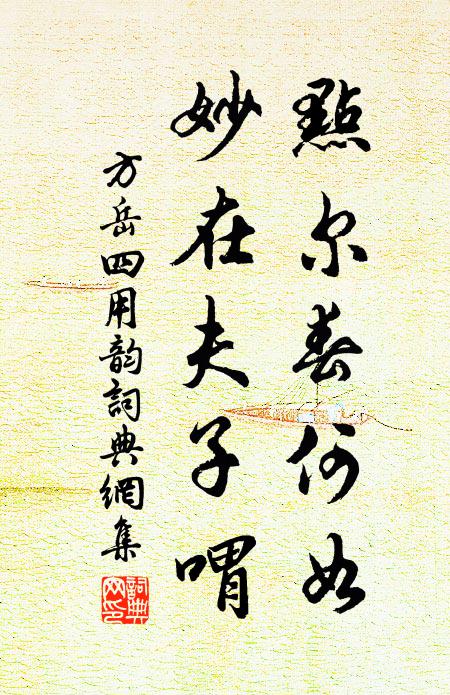 點尔春何如
妙在夫子喟
方岳四用韵詞典網集
詞典
网印